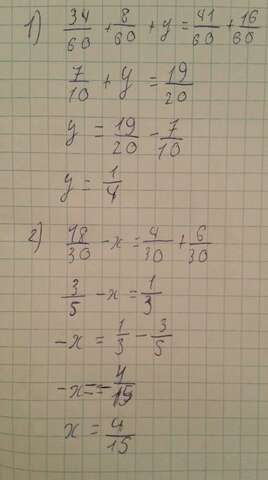 1) 34/60 + 8/60 + y = 41/60 + 16/60
7/10 + y = 19/20
y = 19/20 - 7/10
y = 1/4
2) 18/30 - x = 4/30 + 6/30
3/5 - x = 1/3
-x = 1/3 - 3/5
-x = -4/15
x = 4/15